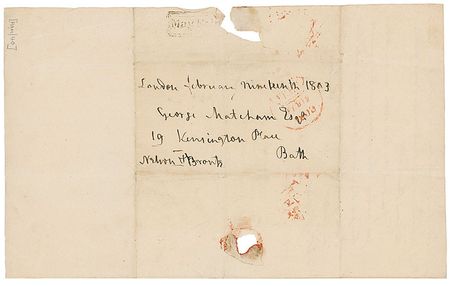 London february nineteenth 1803
George Matcham Esqr
19 Kensington Place
Bath
Nelson & Bronte